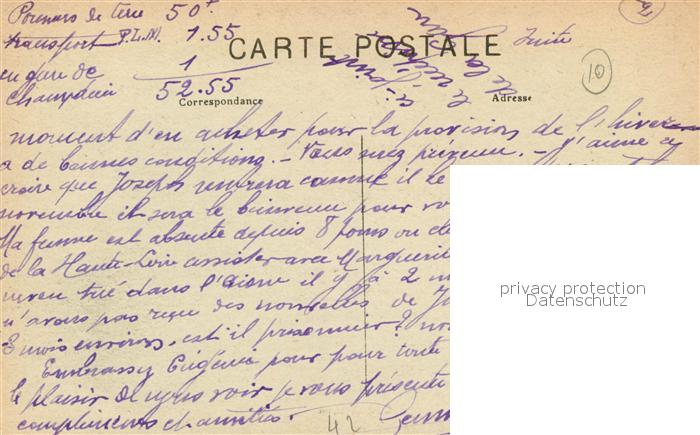 Pommes de terre 50f
transport P.L.M. 1.55
en gare de 1
52.55
Suite
CARTE POSTALE
de la
10
Correspondance
Adresse
moment d'en acheter pour la provision de l'hiver
a de bonnes conditions. - Vous suez prévenu. - J'aime à
croire que Joseph viendra comme il le
novembre il sera le bienvenu pour vo
Ma femme est absente depuis 8 jours ou
de la Haute-Loire assister avec Marguerit
neveu tué dans l'aisne il y a 2 m
n'avons pas reçu des nouvelles de J
3 mois environ, est-il prisonnier? no
Embrassez Eugénie pour pour toute
le plaisir de vous voir je vous présente
compliments
42
privacy protection
Datenschutz